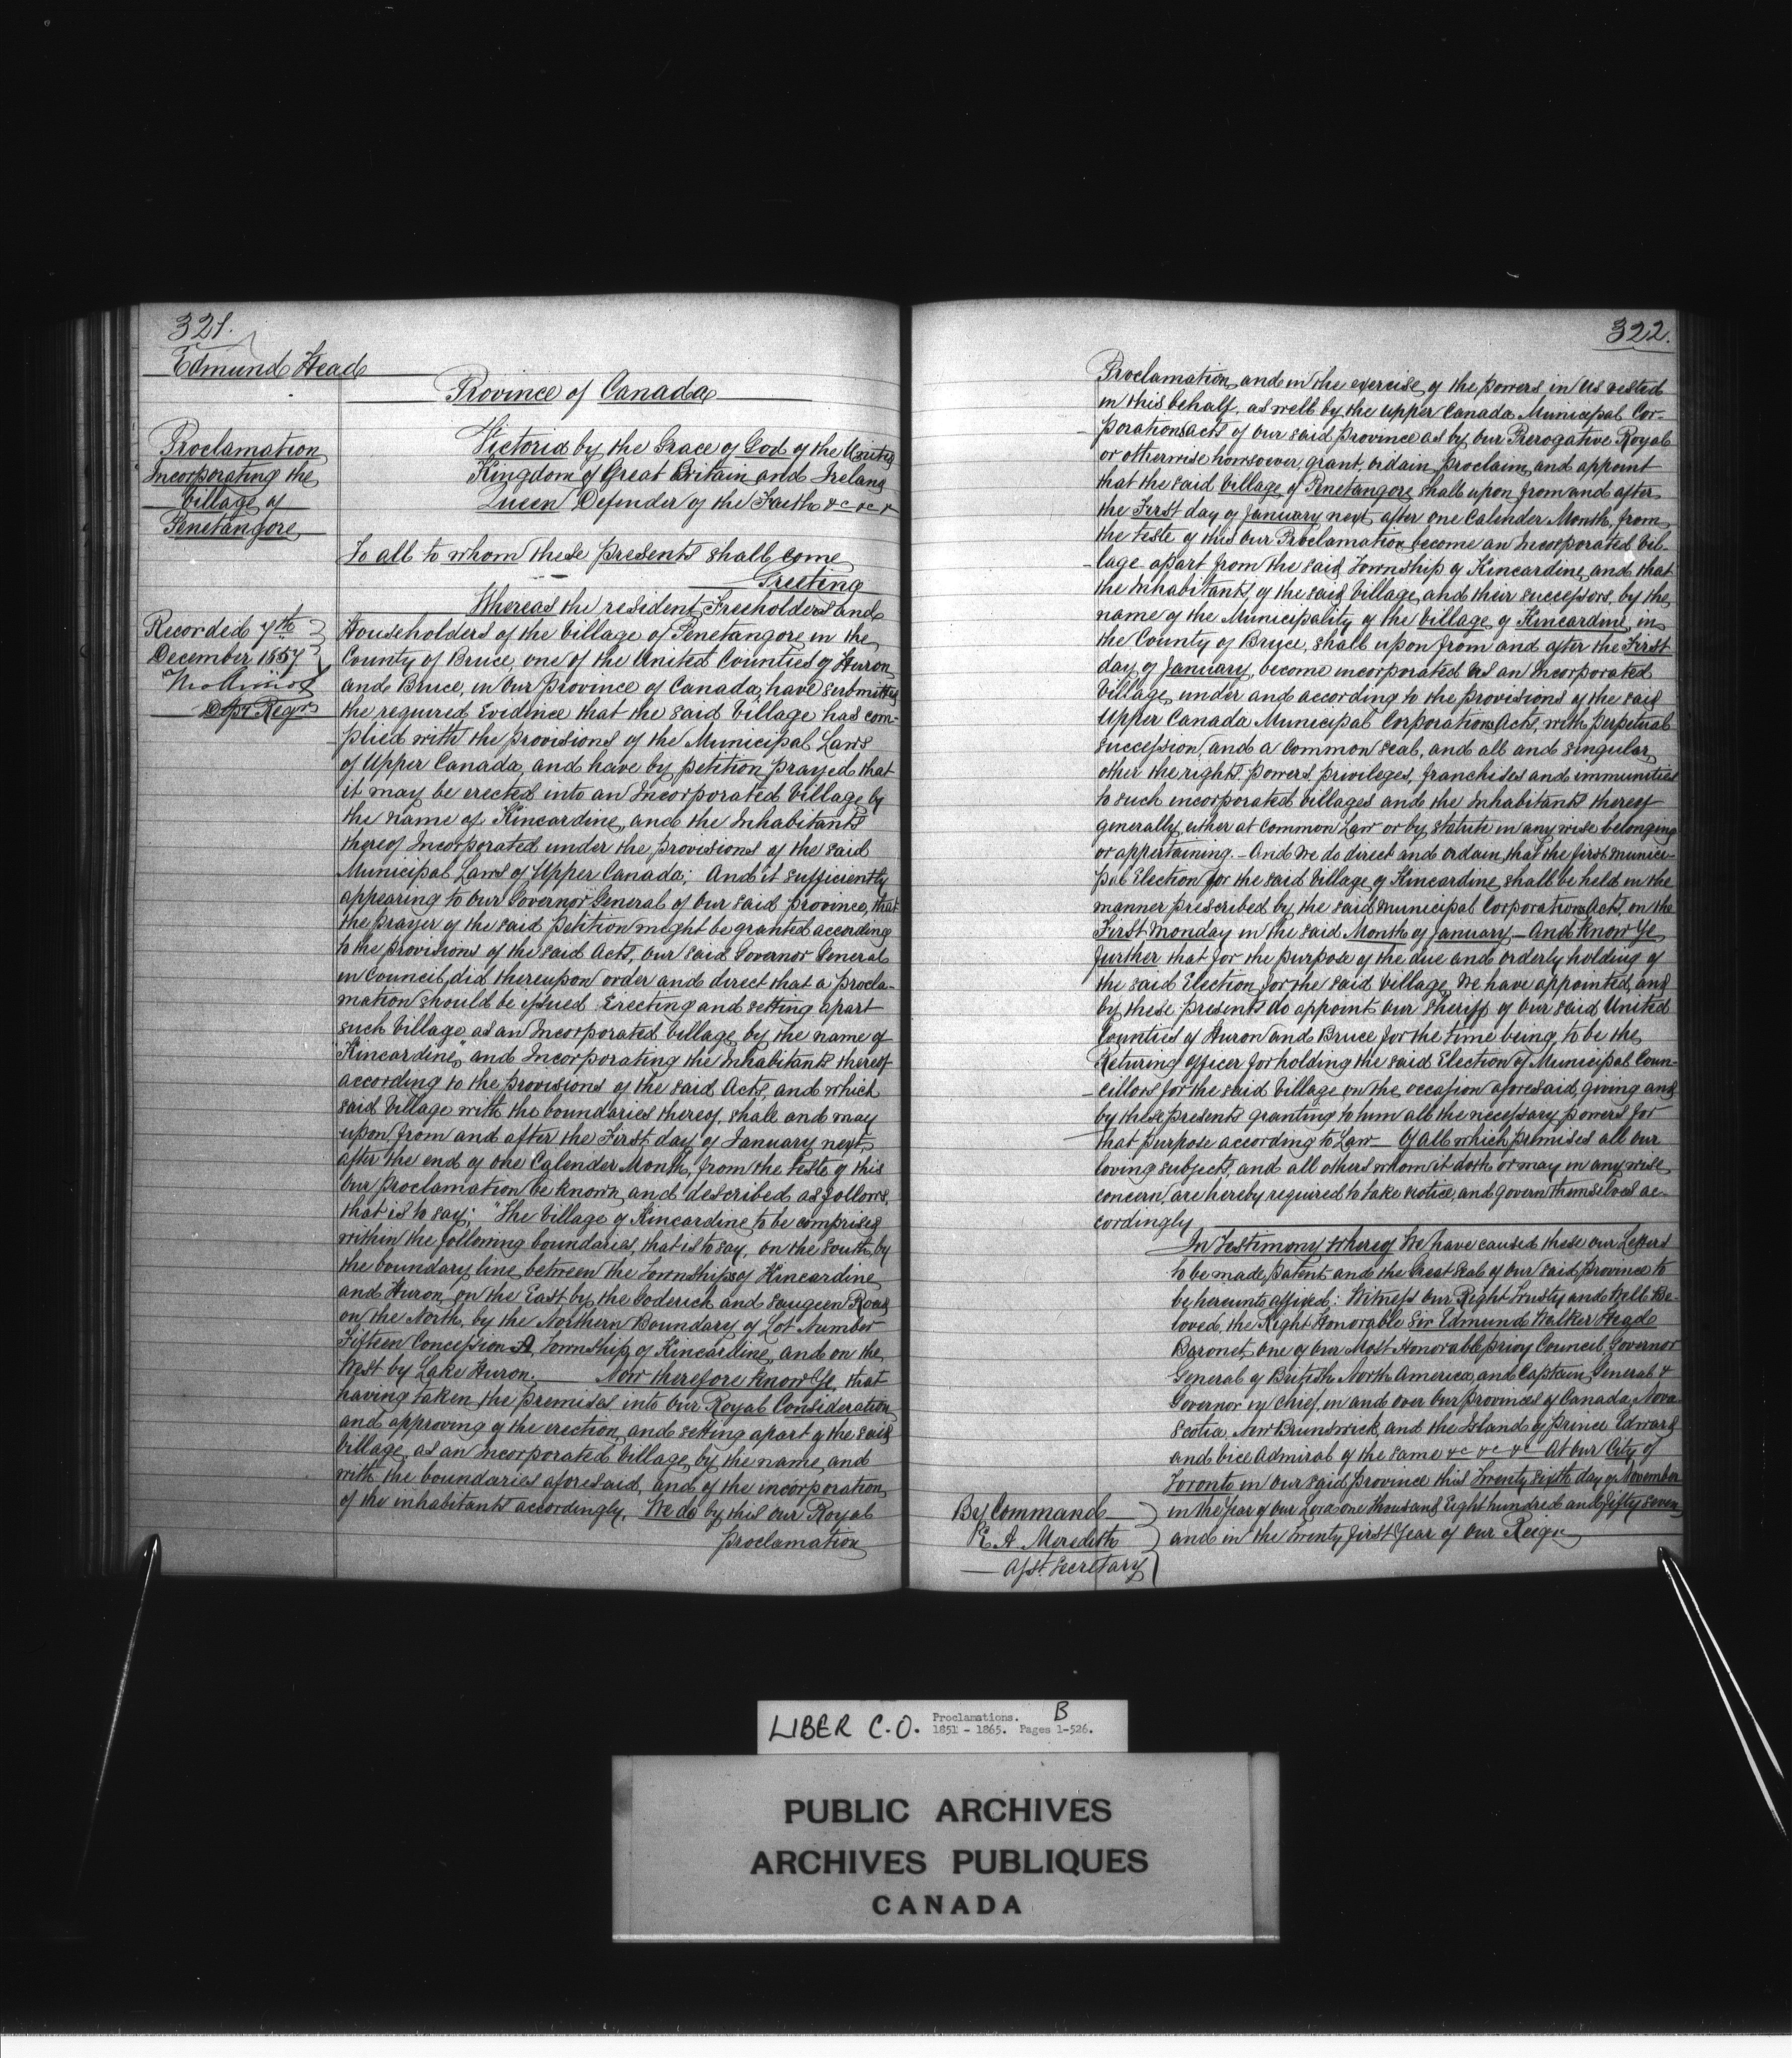 321.
Edmund Head
Province of Canada
Proclamation
Incorporating the
Village of
Penetangore
Victoria by the Grace of God of the United
Kingdom of Great Britain and Ireland
Queen Defender of the Faith &c &c &
To all to whom these presents shall come
Greeting
Recorded 7th
December 1857
Dpy Regr
Whereas the resident Freeholders and
Householders of the Village of Penetangore in the
County of Bruce, one of the United Counties of Huron
and Bruce, in Our Province of Canada, have submitted
the required Evidence that the said Village has com-
plied with the provisions of the Municipal Laws
of Upper Canada, and have by petition prayed that
it may be erected into an Incorporated Village by
the name of Kincardine, and the Inhabitants
thereof Incorporated under the provisions of the said
Municipal Laws of Upper Canada; And it sufficiently
appearing to Our Governor General of Our said Province, that
the prayer of the said Petition might be granted according
to the provisions of the said Acts, Our said Governor General
in Council, did thereupon order and direct that a Procla-
mation should be issued Erecting and setting apart
such Village as an Incorporated Village by the name of
"Kincardine," and Incorporating the Inhabitants thereof
according to the provisions of the said Acts, and which
said Village with the boundaries thereof, shall and may
upon, from and after the First day of January next,
after the end of one Calender Month, from the teste of this
Our Proclamation be known and described as follows,
that is to say; "The Village of Kincardine to be comprised
within the following boundaries, that is to say, on the South, by
the boundary line between the Townships of Kincardine
and Huron, on the East by the Goderich and Saugeen Road
on the North, by the Northern Boundary of Lot Number
Fifteen Concession A, Township of Kincardine, and on the
West by Lake Huron. Now therefore know Ye, that
having taken the premises into Our Royal Consideration
and approving of the erection and setting apart of the said
Village, as an Incorporated Village by the name, and
with the boundaries aforesaid, and of the incorporation
of the inhabitants accordingly, We do by this our Royal
Proclamation
322.
Proclamation, and in the exercise of the powers, in Us vested
in this behalf, as well by the Upper Canada Municipal Cor-
porations Acts of Our said Province as by Our Prerogative Royal
or otherwise howsoever, grant, ordain, proclaim, and appoint
that the said Village of Penetangore, shall upon from and after
the First day of January next after one Calender Month, from
the teste of this Our Proclamation, become an Incorporated Vil-
lage apart from the said Township of Kincardine, and that
the Inhabitants, of the said Village, and their successors, by the
name of the Municipality of the Village of Kincardine, in
the County of Bruce, shall upon from and after the First
day of January, become incorporated as an Incorporated
Village, under and according to the provisions of the said
Upper Canada Municipal Corporations Acts, with perpetual
succession, and a common seal, and all and singular,
other the rights, powers, privileges, franchises and immunities
to such incorporated Villages and the Inhabitants thereof
generally, either at Common Law or by statute in any wise belonging
or appertaining. - And We do direct and ordain, that the first munici-
pal Election for the said Village of Kincardine, shall be held in the
manner prescribed by the said Municipal Corporations Acts, on the
First Monday in the said Month of January - And know Ye
further that for the purpose of the due and orderly holding of
the said Election, for the said Village, We have appointed, and
by these presents do appoint our Sheriff of our said United
Counties of Huron and Bruce for the time being, to be the
Returning Officer for holding the said Election of Municipal Coun-
cillors for the said Village on the occasion aforesaid, giving and
by these presents granting to him all the necessary powers for
that purpose according to Law - Of all which premises all our
loving subjects, and all others whom it doth or may in any wise
concern, are hereby required to take notice, and govern themselves ac-
cordingly
In Testimony Whereof We have caused these our Letters
to be made Patent and the Great Seal of Our said Province to
be hereunto affixed: Witness Our Right Trusty and Well Be-
loved, the Right Honorable Sir Edmund Walker Head
Baronet, one of our Most Honorable Privy Council, Governor
General of British North America, and Captain General &
Governor in Chief, in and over Our Provinces of Canada, Nova
Scotia, New Brunswick, and the Island of Prince Edward
and Vice Admiral of the same &c &c &c At Our City of
Toronto in Our said Province this Twenty sixth day of November
in the year of Our Lord one thousand Eight hundred and fifty seven
and in the Twenty first Year of Our Reign
By Command
E. A. Meredith
Asst. Secretary
LIBER C.O. Proclamations. B
1851 - 1865. Pages 1-526.
PUBLIC ARCHIVES
ARCHIVES PUBLIQUES
CANADA